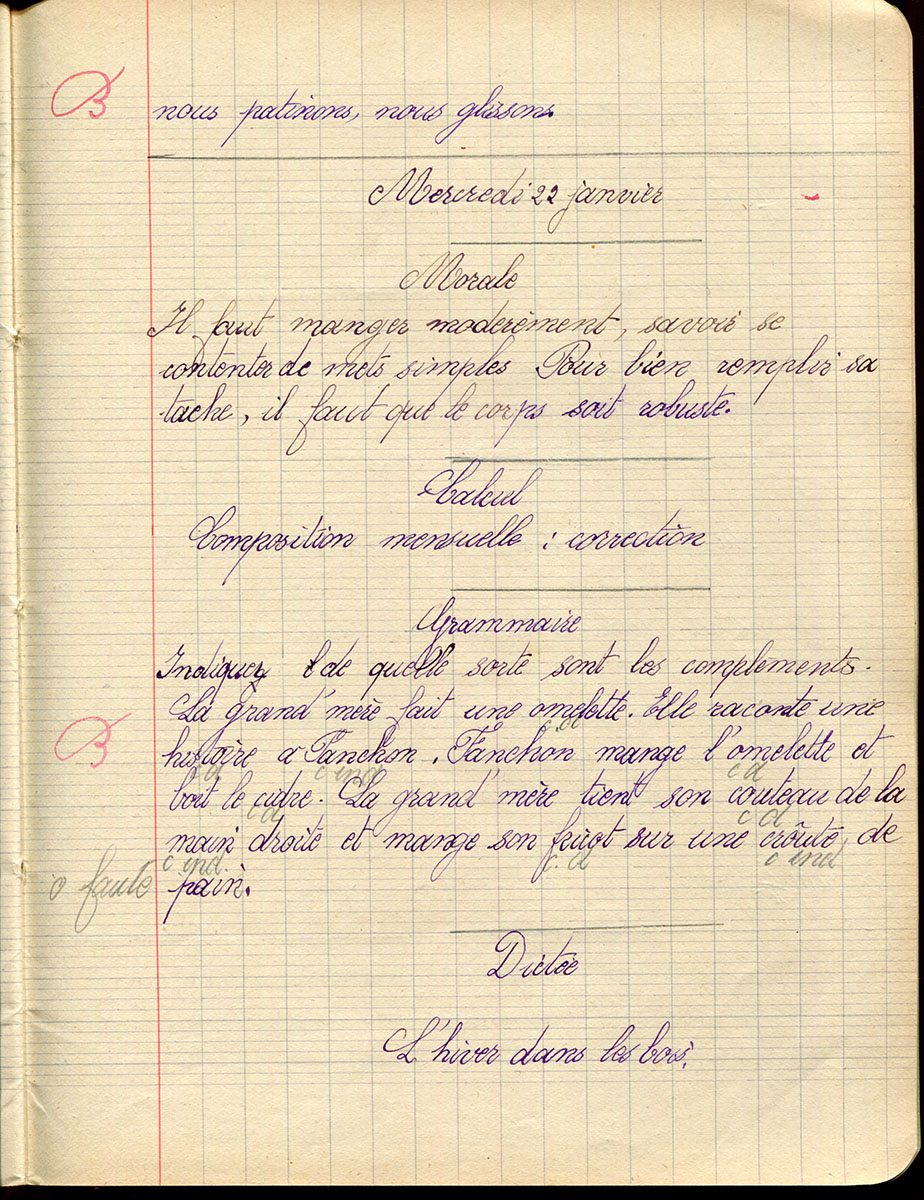 B
nous patinons, nous glissons.
Mercredi 22 janvier
Morale
Il faut manger moderèment, savoir se
contenter de mets simples Pour bien remplir sa
tache, il faut que le corps soit robuste.
Calcul
Composition mensuelle : correction
Grammaire
Indiquez de quelle sorte sont les complements.
La grand' mère fait une omelette. Elle raconte une
c. d
B
histoire a Fanchon. Fanchon mange l'omelette et
c d c ind c d
boit le cidre. La grand' mère tient son couteau de la
c d c d
main droite et mange son fricot sur une croûte de
c ind. c. d c ind
0 faute pain.
Dictée
L'hiver dans les bois.